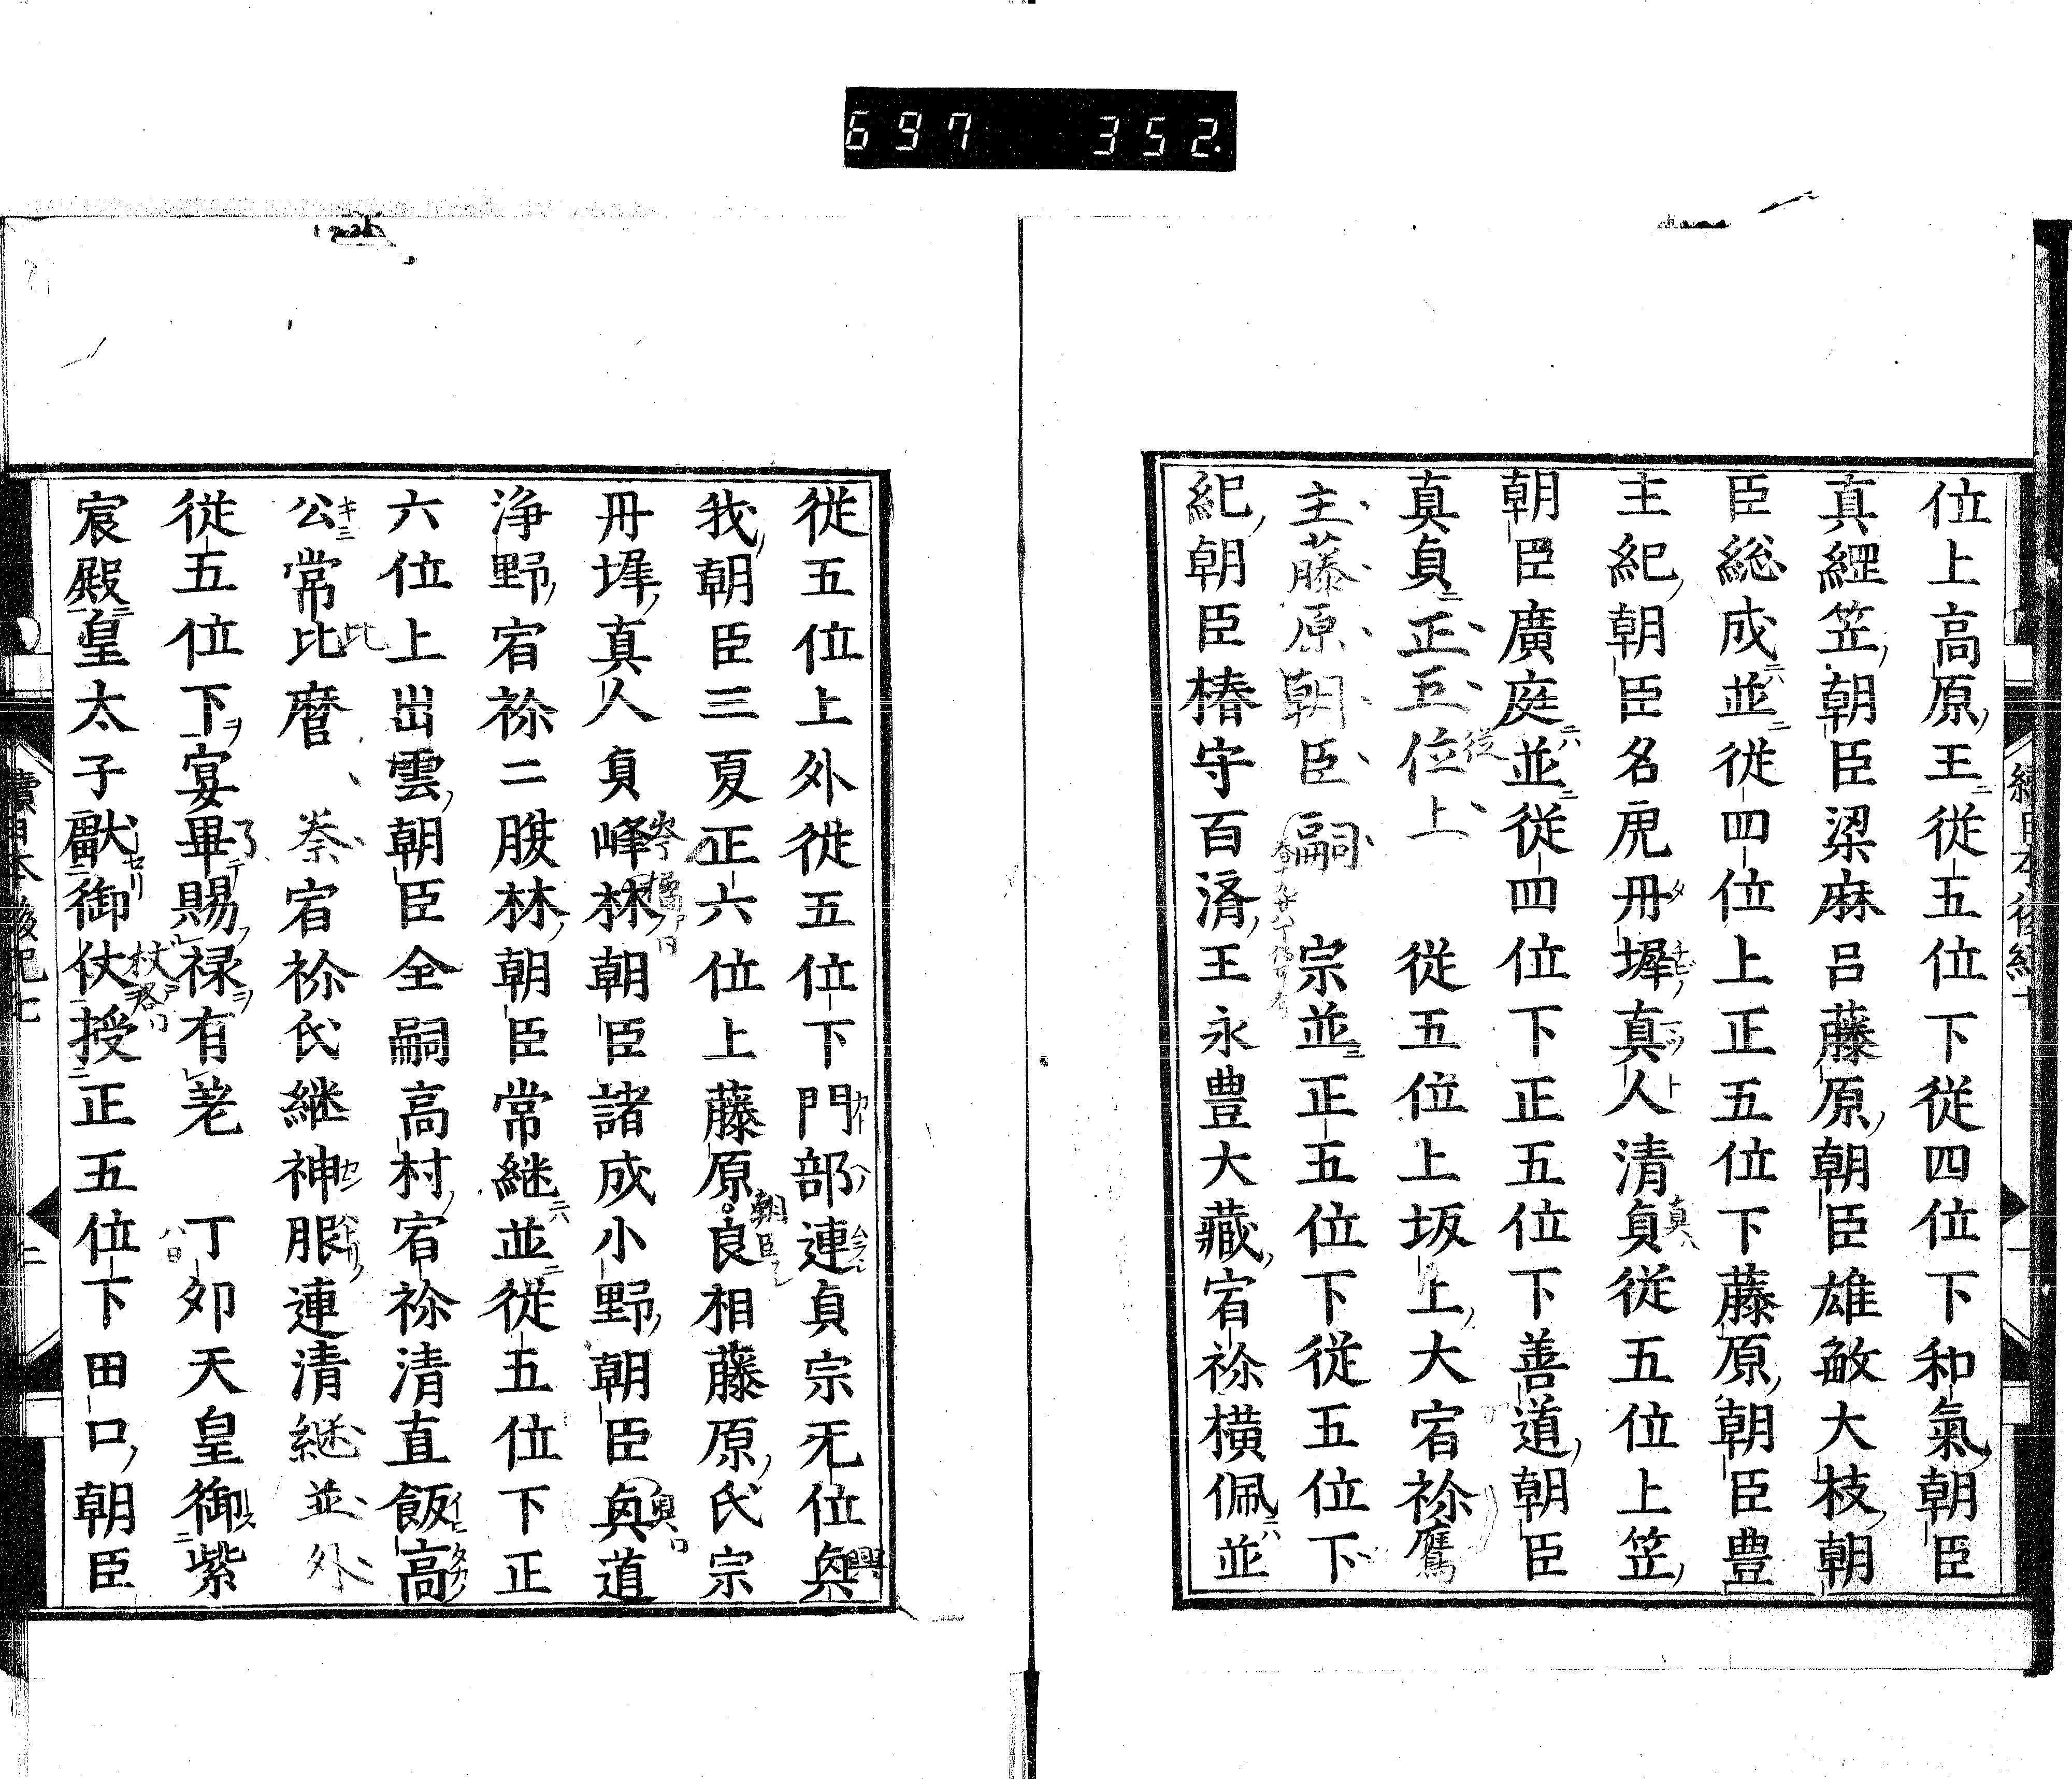 697 352
位上高原王従五位下従四位下和氣朝臣
真綱笠朝臣梁麻呂藤原朝臣雄敏大枝朝
臣総成並従四位上正五位下藤原朝臣豊
主紀朝臣名虎丹墀真人清貞従五位上笠
朝臣廣庭並従四位下正五位下善道朝臣
真貞正五位上 従五位上坂上大宿祢鷹
主藤原朝臣嗣 宗並正五位下従五位下
紀朝臣椿守百済王永豊大藏宿祢横佩並
従五位上外従五位下門部連貞宗无位與
我朝臣三夏正六位上藤原良相藤原氏宗
丹墀真人貞峰林朝臣諸成小野朝臣奥道
浄野宿祢二腹林朝臣常継並従五位下正
六位上出雲朝臣全嗣高村宿祢清直飯高
公常比麿 秦宿祢氏継神服連清継並外
従五位下宴畢賜禄有差 丁卯天皇御紫
宸殿皇太子獻御杖授正五位下田口朝臣